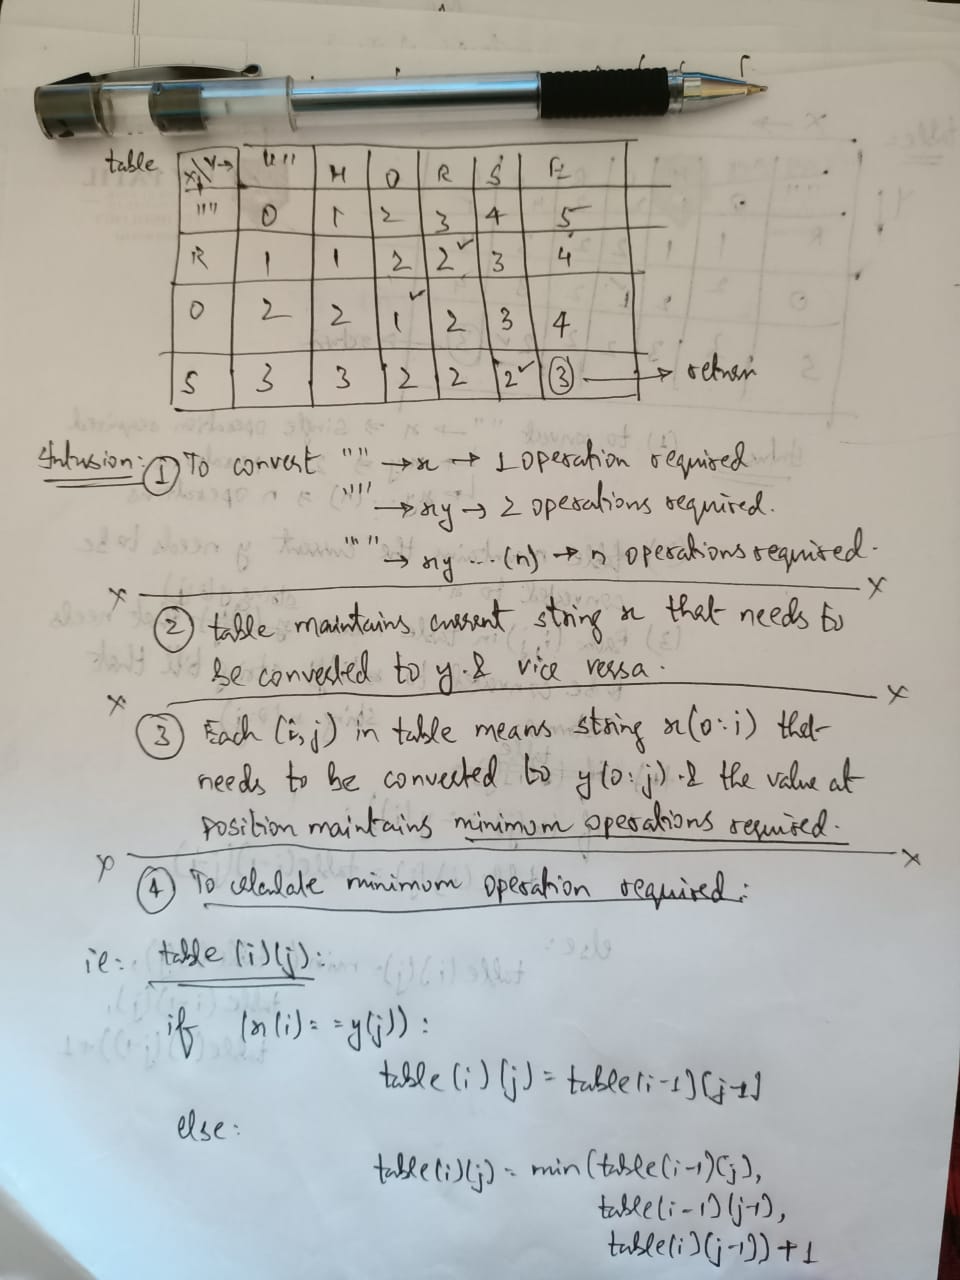 table
x\y→ "" H O R S E
"" 0 1 2 3 4 5
R 1 1 2 2✓ 3 4
O 2 2 1✓ 2 3 4
S 3 3 2 2 2✓ ③ → return
Intusion: ① To convert "" → x → 1 operation required
"" → xy → 2 operations required.
"" → xy ... (n) → n operations required.
x x
② table maintains current string x that needs to
be converted to y. & vice versa.
x x
③ Each (i,j) in table means string x(0:i) that
needs to be converted to y(0:j). & the value at
position maintains minimum operations required.
x x
④ To calculate minimum operation required:
ie: table(i)(j):
if (x(i) == y(j)):
table(i)(j) = table(i-1)(j-1)
else:
table(i)(j) = min(table(i-1)(j),
table(i-1)(j-1),
table(i)(j-1)) + 1